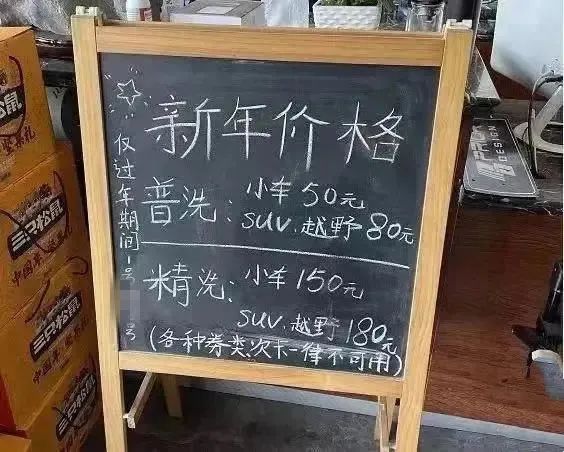 新年价格
普洗：小车50元
SUV.越野80元
精洗：小车150元
SUV.越野180元
(各种券类次卡一律不可用)
☆仅过年期间1号
号
三只松鼠
坚果礼
三只松鼠
三只松鼠
DESIGN